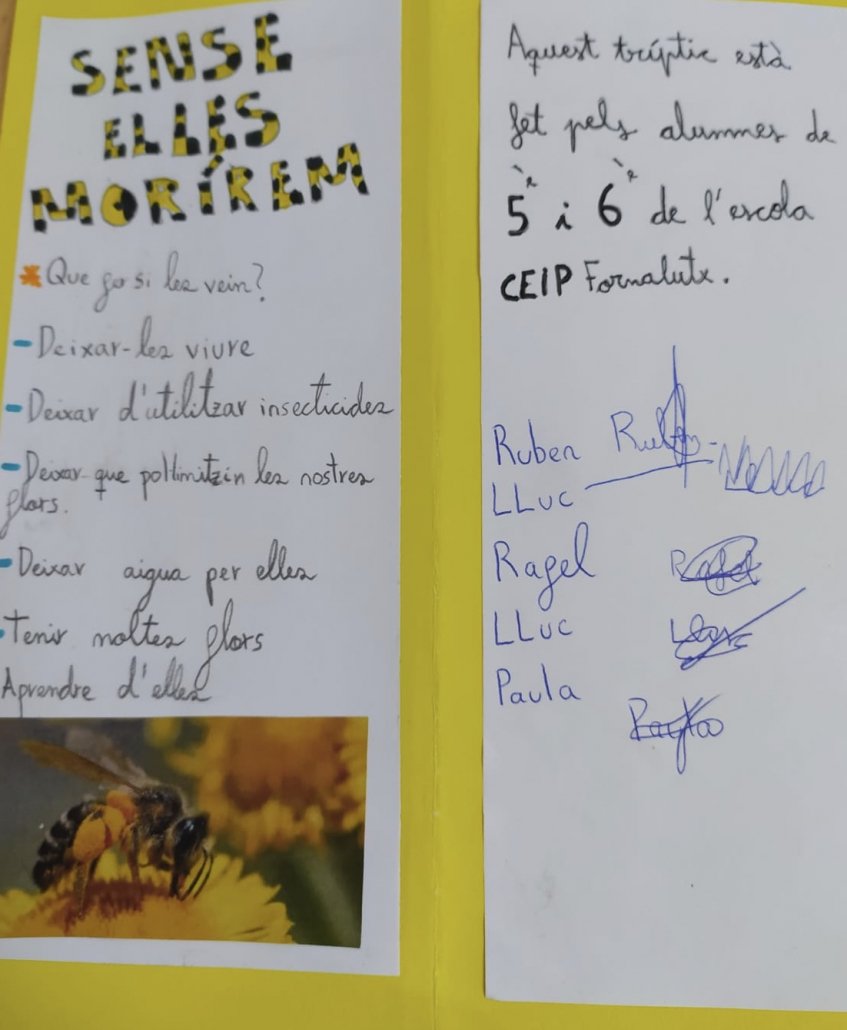 SENSE
ELLES
MORÍREM
Que fa si les vein?
- Deixar-les viure
- Deixar d'utilitzar insecticides
- Deixar que pol·linitzin les nostres
flors.
- Deixar aigua per elles
- Tenir moltes flors
Aprendre d'elles
Aquest tríptic està
fet pels alumnes de
5è i 6è de l'escola
CEIP Fornalutx.
Ruben Ruben
LLuc
Rafel Rafel
LLuc
Paula